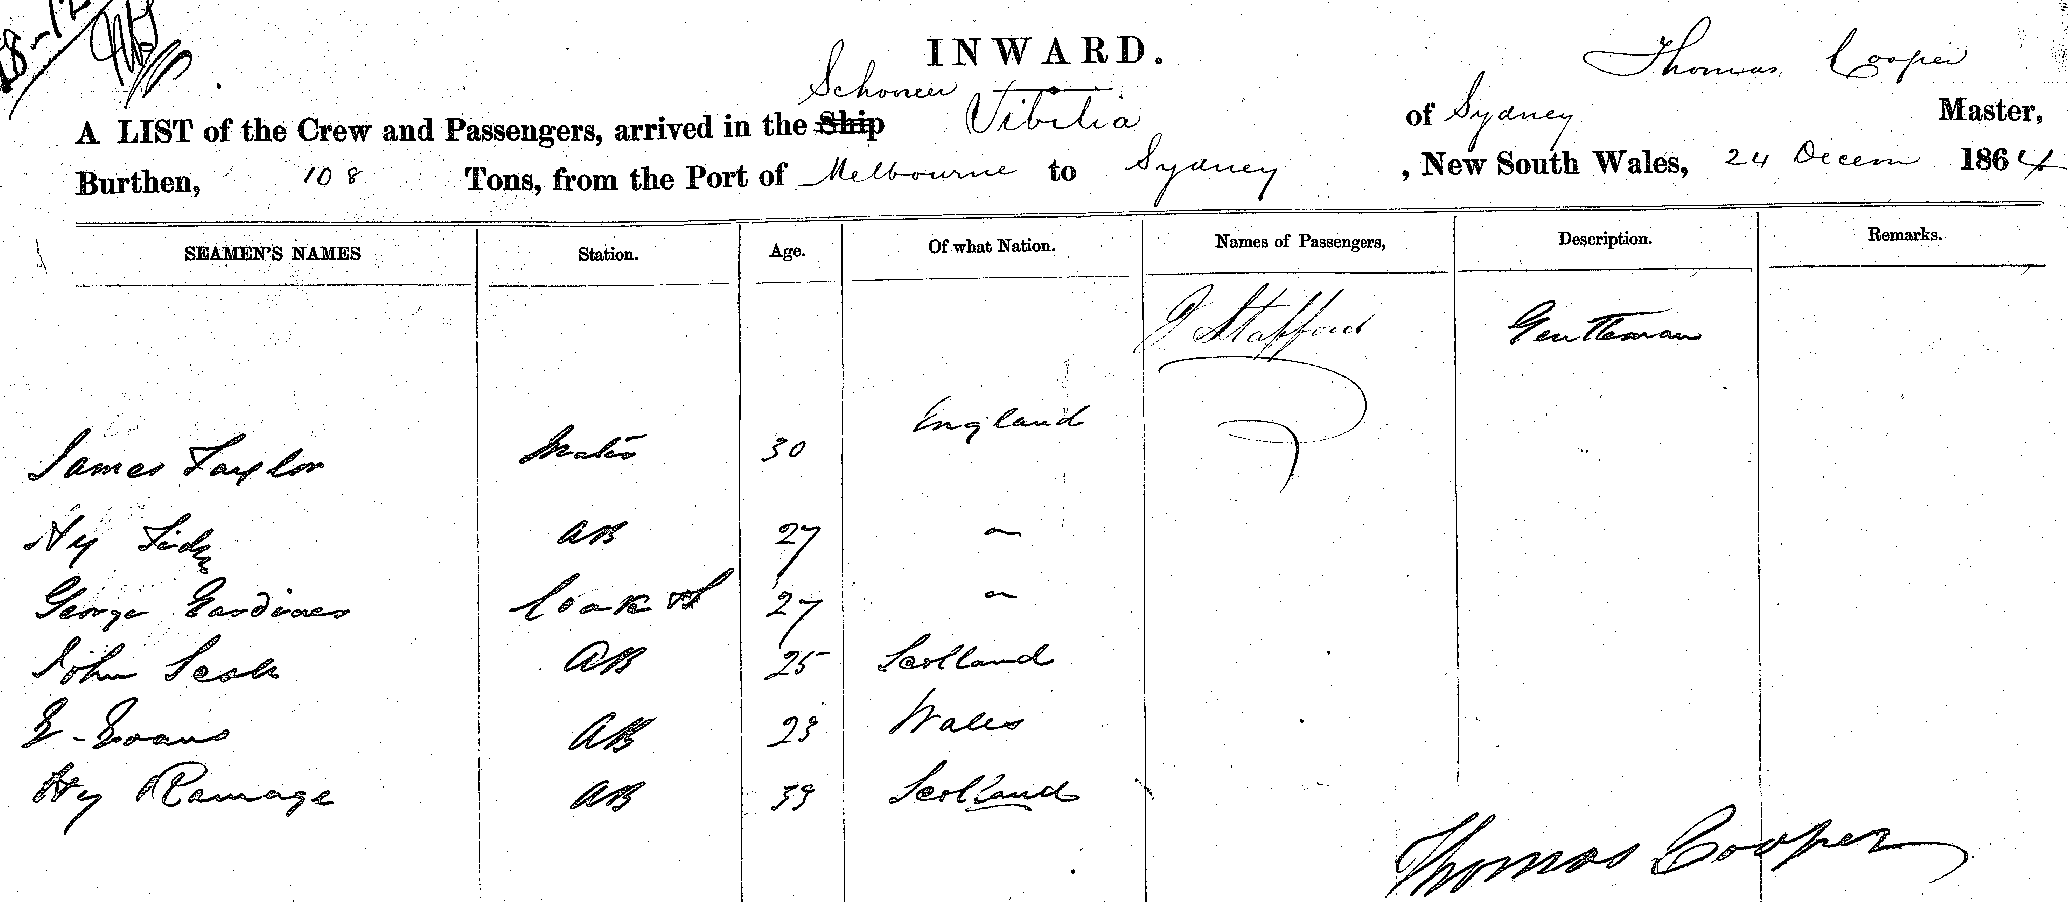 28-12
INWARD.
Thomas Cooper
Schooner
A LIST of the Crew and Passengers, arrived in the Ship Vibilia of Sydney Master,
Burthen, 108 Tons, from the Port of Melbourne to Sydney, New South Wales, 24 Decem 1864
SEAMEN'S NAMES Station. Age. Of what Nation. Names of Passengers, Description. Remarks.
Stafford Gentleman
James Taylor Mate 30 England
Hy AB 27 "
George Gardiner Cook & S 27 "
John Scott AB 25 Scotland
E - Evans AB 23 Wales
Hy Ramage AB 39 Scotland
Thomas Cooper